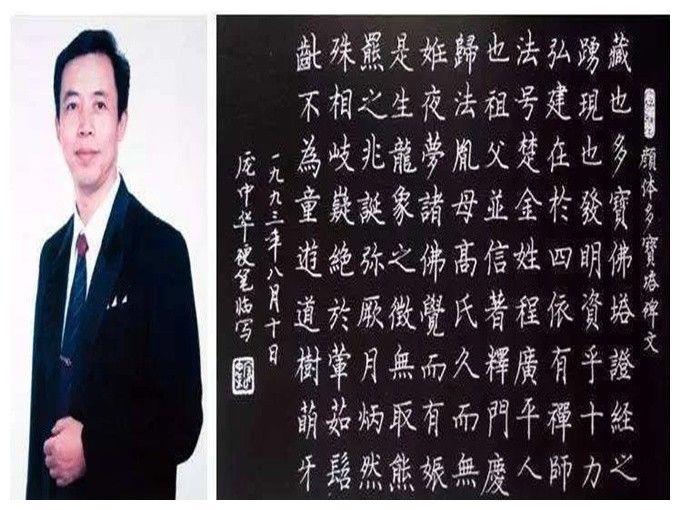 顏体多寶塔碑文
藏也多寶佛塔證經之
踴現也發明資乎十力
弘建在於四依有禪師
法号楚金姓程廣平人
也祖父並信著釋門慶
歸法胤母高氏久而無
姙夜夢諸佛覺而有娠
是生龍象之徵無取熊
羆之兆誕弥厥月炳然
殊相岐嶷絶於葷茹髫
齔不為童遊道樹萌牙
一九九三年八月十日
庞中华硬笔临写